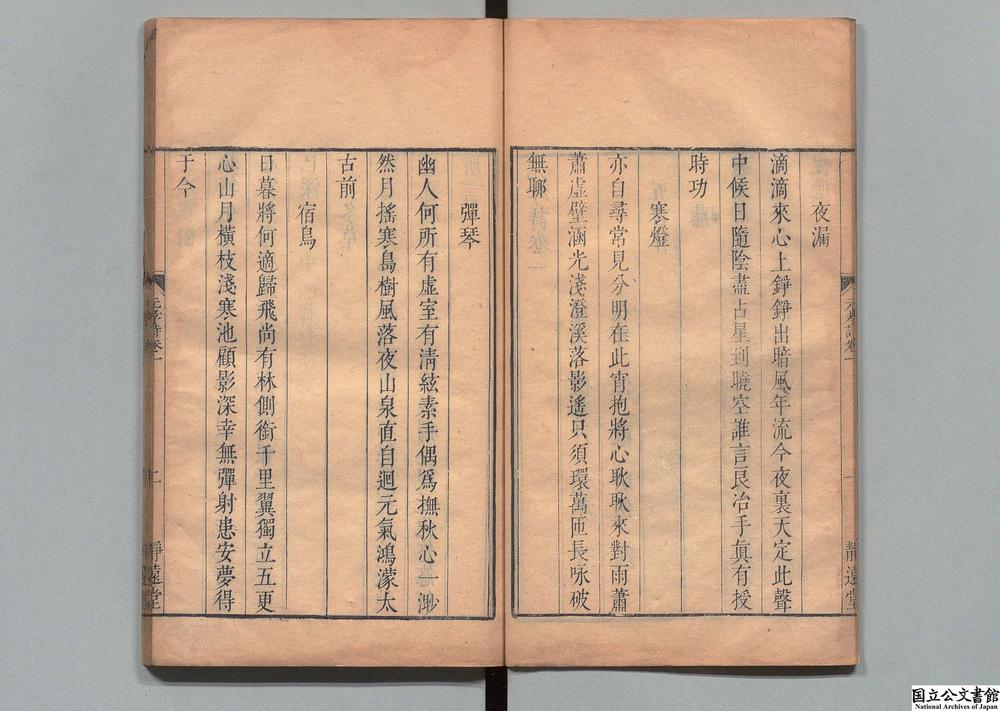 夜漏
滴滴來心上錚錚出暗風年流今夜裏天定此聲
中候日隨陰盡占星到曉空誰言良冶手眞有授
時功
寒燈
亦自尋常見分明在此宵抱將心耿耿來對雨蕭
蕭虛壁涵光淺澄溪落影遙只須環萬匝長咏破
無聊
靜遠堂
彈琴
幽人何所有虛室有淸絃素手偶爲撫秋心一渺
然月搖寒島樹風落夜山泉直自迴元氣鴻濛太
古前
宿鳥
日暮將何適歸飛尚有林側銜千里翼獨立五更
心山月橫枝淺寒池顧影深幸無彈射患安夢得
于今
詩卷一
靜遠堂
国立公文書館
National Archives of Japan